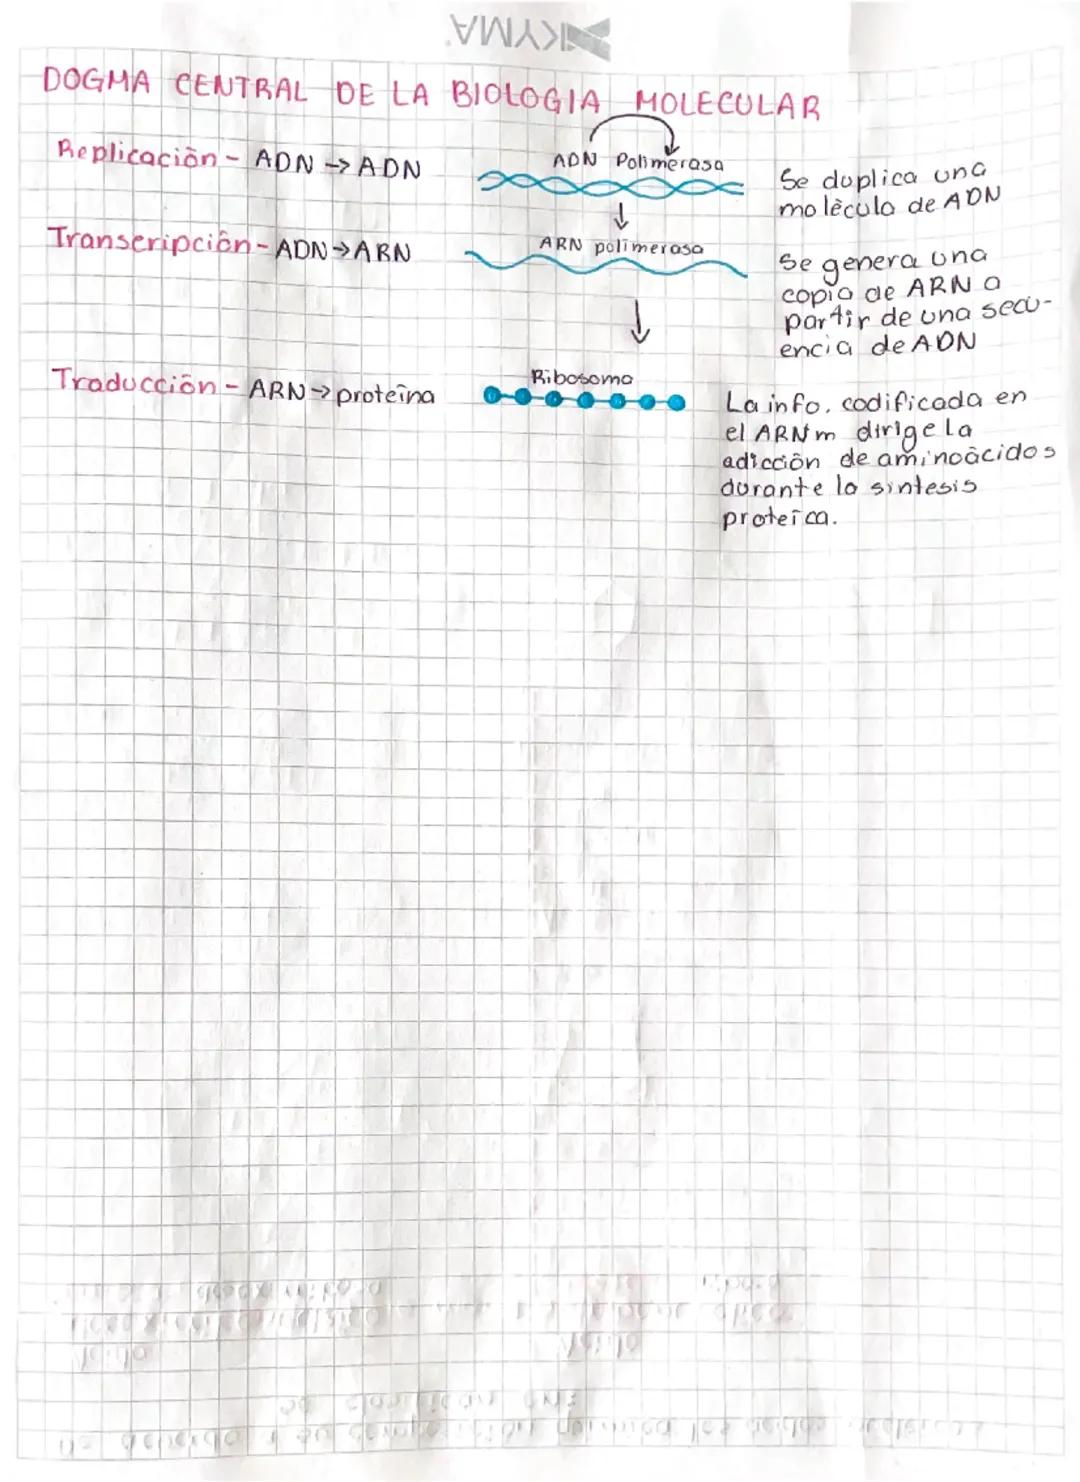 KYMA
DOGMA CENTRAL DE LA BIOLOGIA MOLECULAR
Replicación - ADN → ADN
ADN Polimerasa
Se duplica una
molècula de ADN
Transcripción - ADN → ARN
ARN polimerasa
Se genera una
copia de ARN a
partir de una secu-
encia de ADN
Traducción - ARN → proteína
Ribosoma
La info. codificada en
el ARNm dirige la
adicción de aminoácidos
durante la sintesis
proteíca.